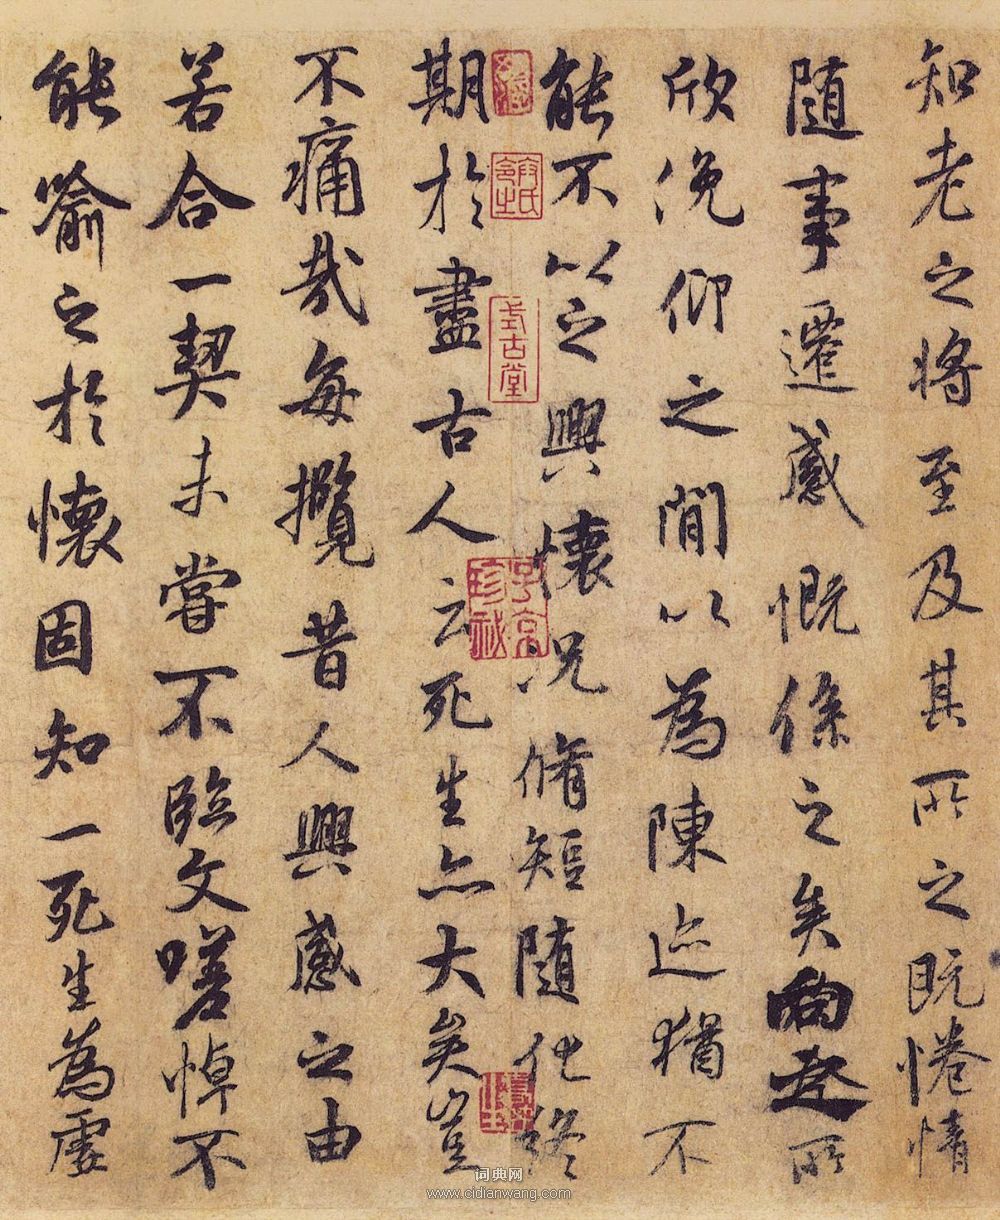 知老之將至及其所之既惓情
随事遷感慨係之矣向之所
欣俛仰之閒以為陳迹猶不
能不以之興懷況脩短随化終
期於盡古人云死生亦大矣豈
不痛哉每攬昔人興感之由
若合一契未嘗不臨文嗟悼不
能喻之於懷固知一死生為虛
式古堂
子京珍祕
词典网
www.cidianwang.com